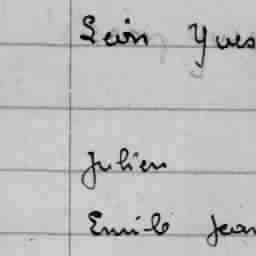 Léon Yves
Julien
Emile Jean